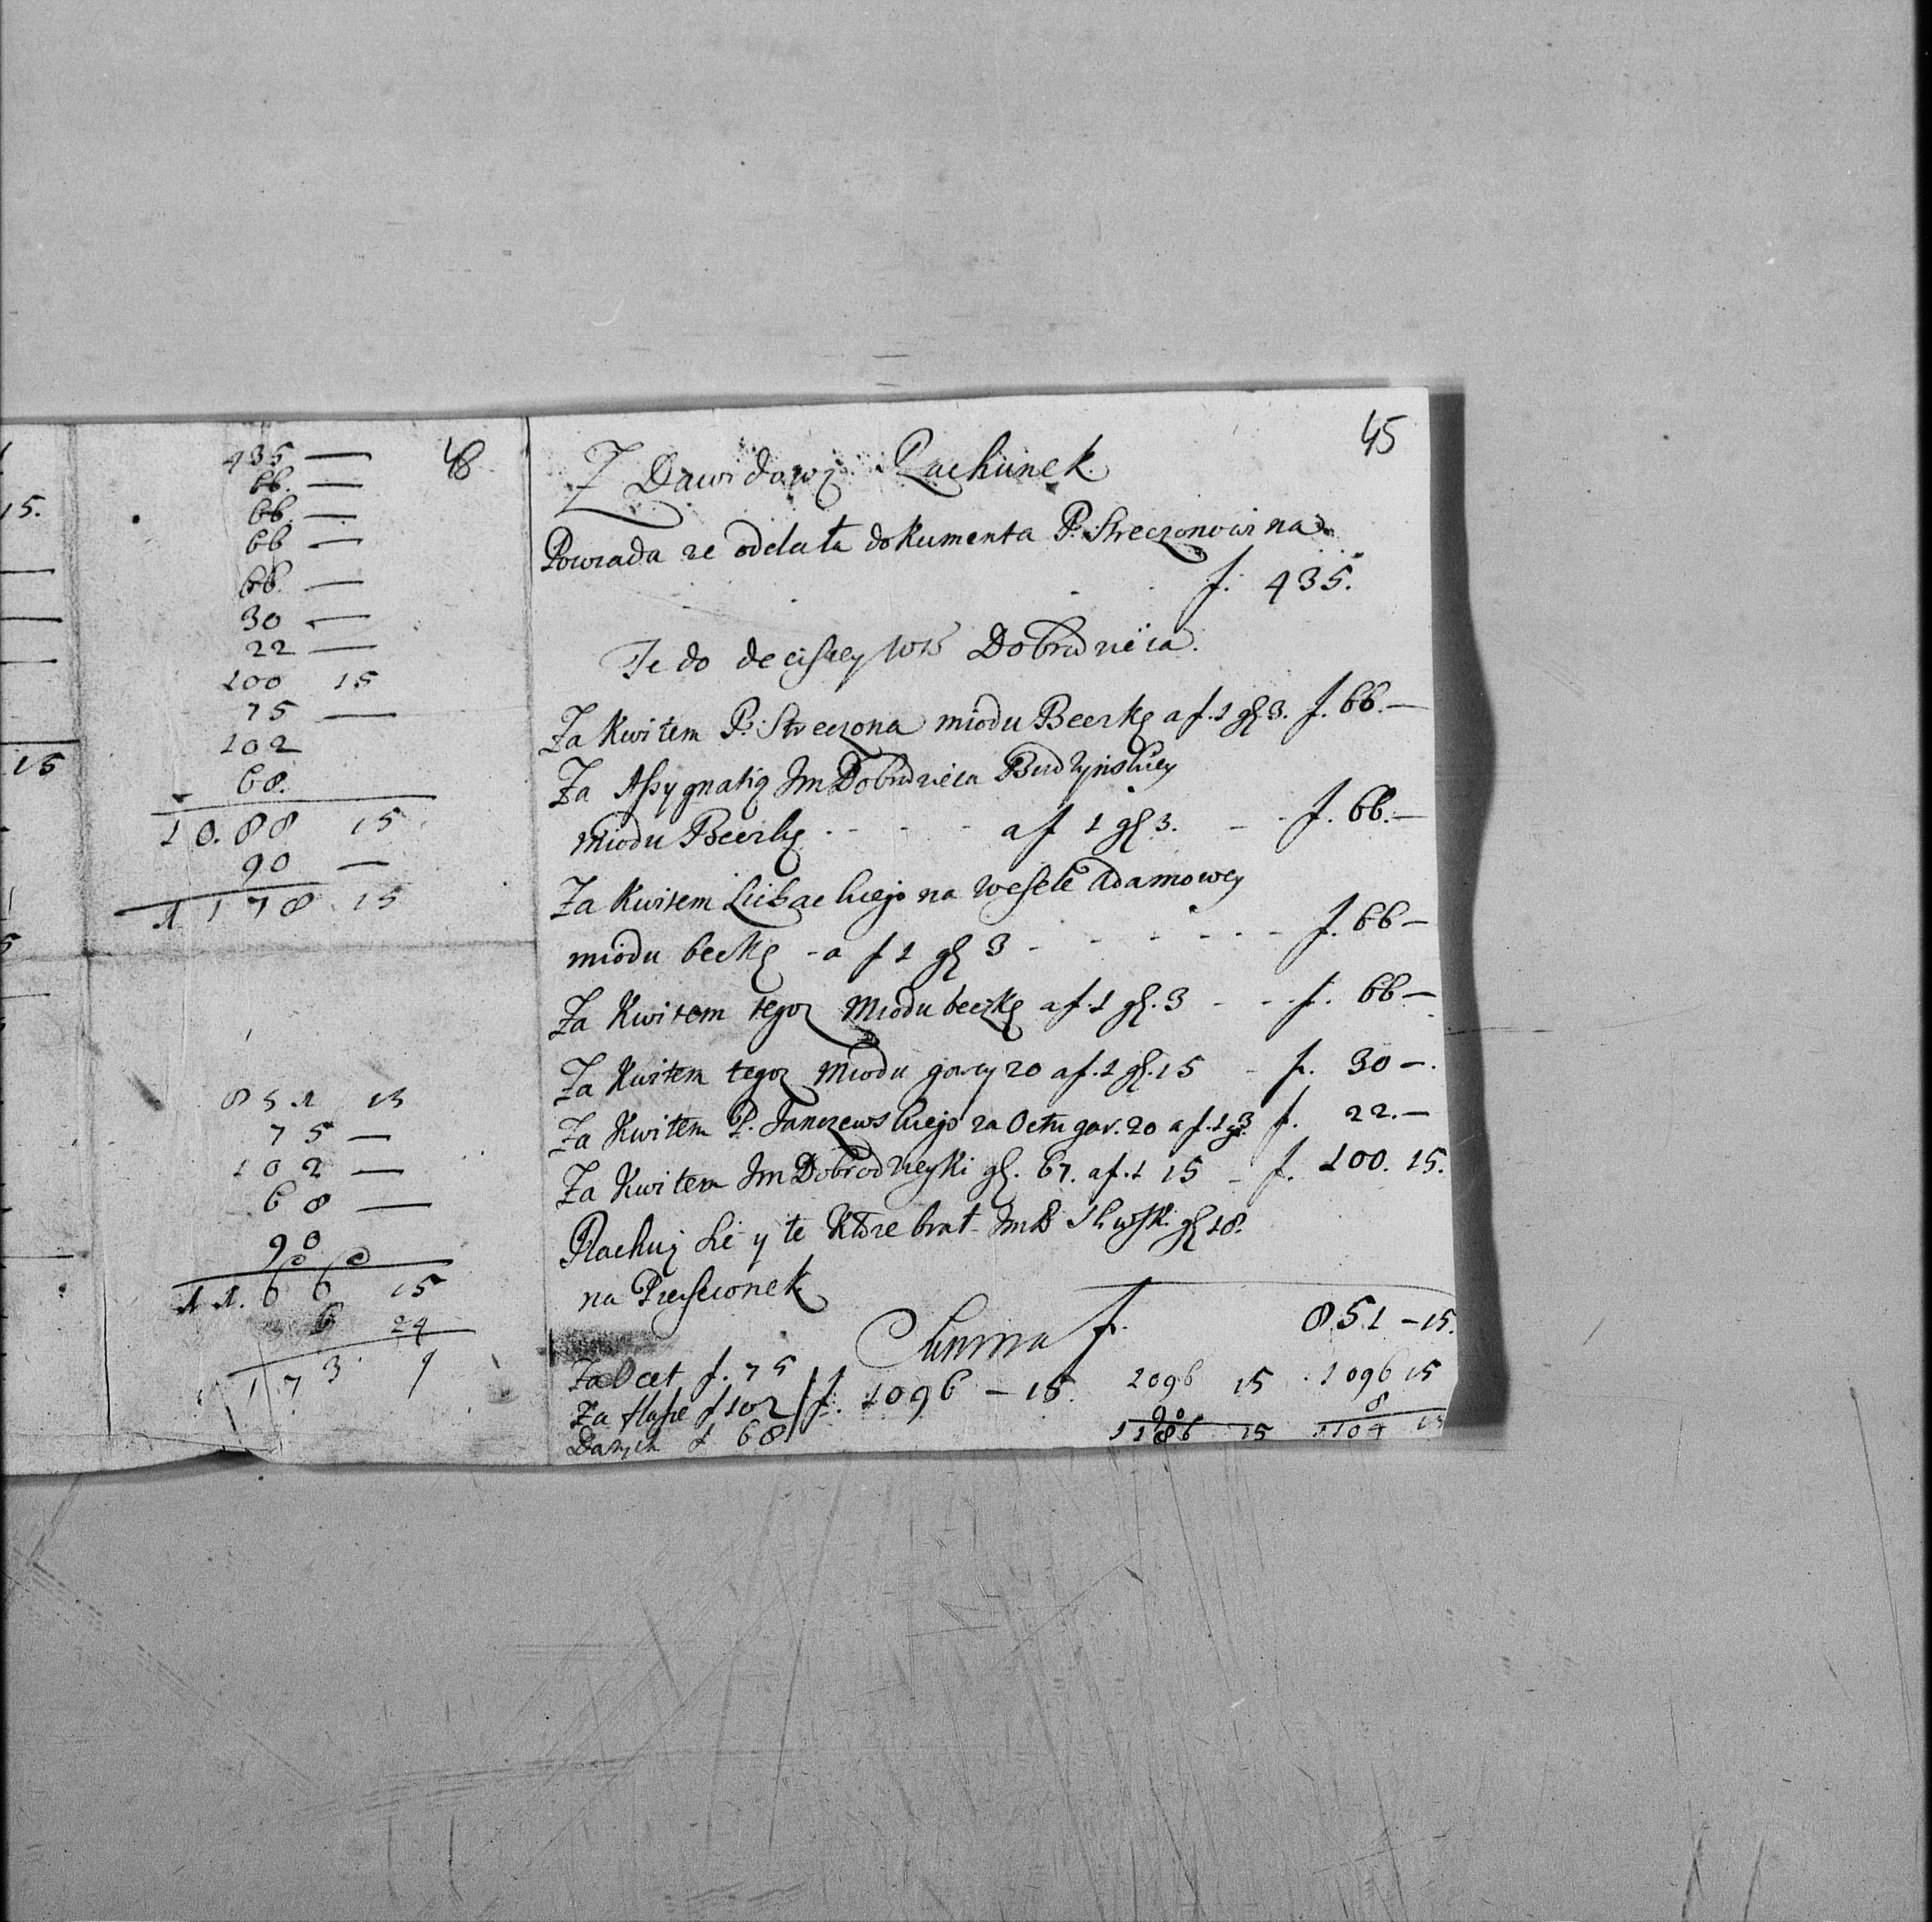 15.
15
435 —
66. —
66. —
66 —
66. —
30 —
22 —
100 15
75 —
102
68.
10.88 15
90 —
1178 15
851 15
75 —
102 —
68 —
90
11.66 15
6 24
1173 9
48
45
Z Dawidową Rachunek
Powiada ze oddała dokumenta P. Streczonowi na
f. 435.
Te do decisiey Dobrodzieia.
Za Kwitem P. Streczona miodu Beczkę a f. 1 gś. 3. f. 66. —
Za Assygnatią Im Dobrodzieia Budzynskiey
miodu Beczkę - - - a f 1 gś 3. - - f. 66. —
Za Kwitem na Wesele Adamowey
miodu beckę - a f 1 gś 3 - - - - - - f. 66 —
Za Kwitem tegoz Miodu beczkę a f. 1 gś. 3 - - f. 66 —
Za Kwitem tegoz Miodu garcy 20 a f. 1 gś. 15 - f. 30 —.
Za Kwitem P. Janczewskiego za Octu gar. 20 a f. 1 g. 3 f. 22. —
Za Kwitem Im Dobrodzieyki gś. 67. a f. 1 15 - f. 100. 15.
Rachuią sie y te Które brat gś 18.
na Piersionek
Summa f. 851 — 15.
Za Ocet f. 75
Za flasze f 102 f. 1096 — 15. 1096 15 1096 15
f 68 90 8
1186 15 1104 15